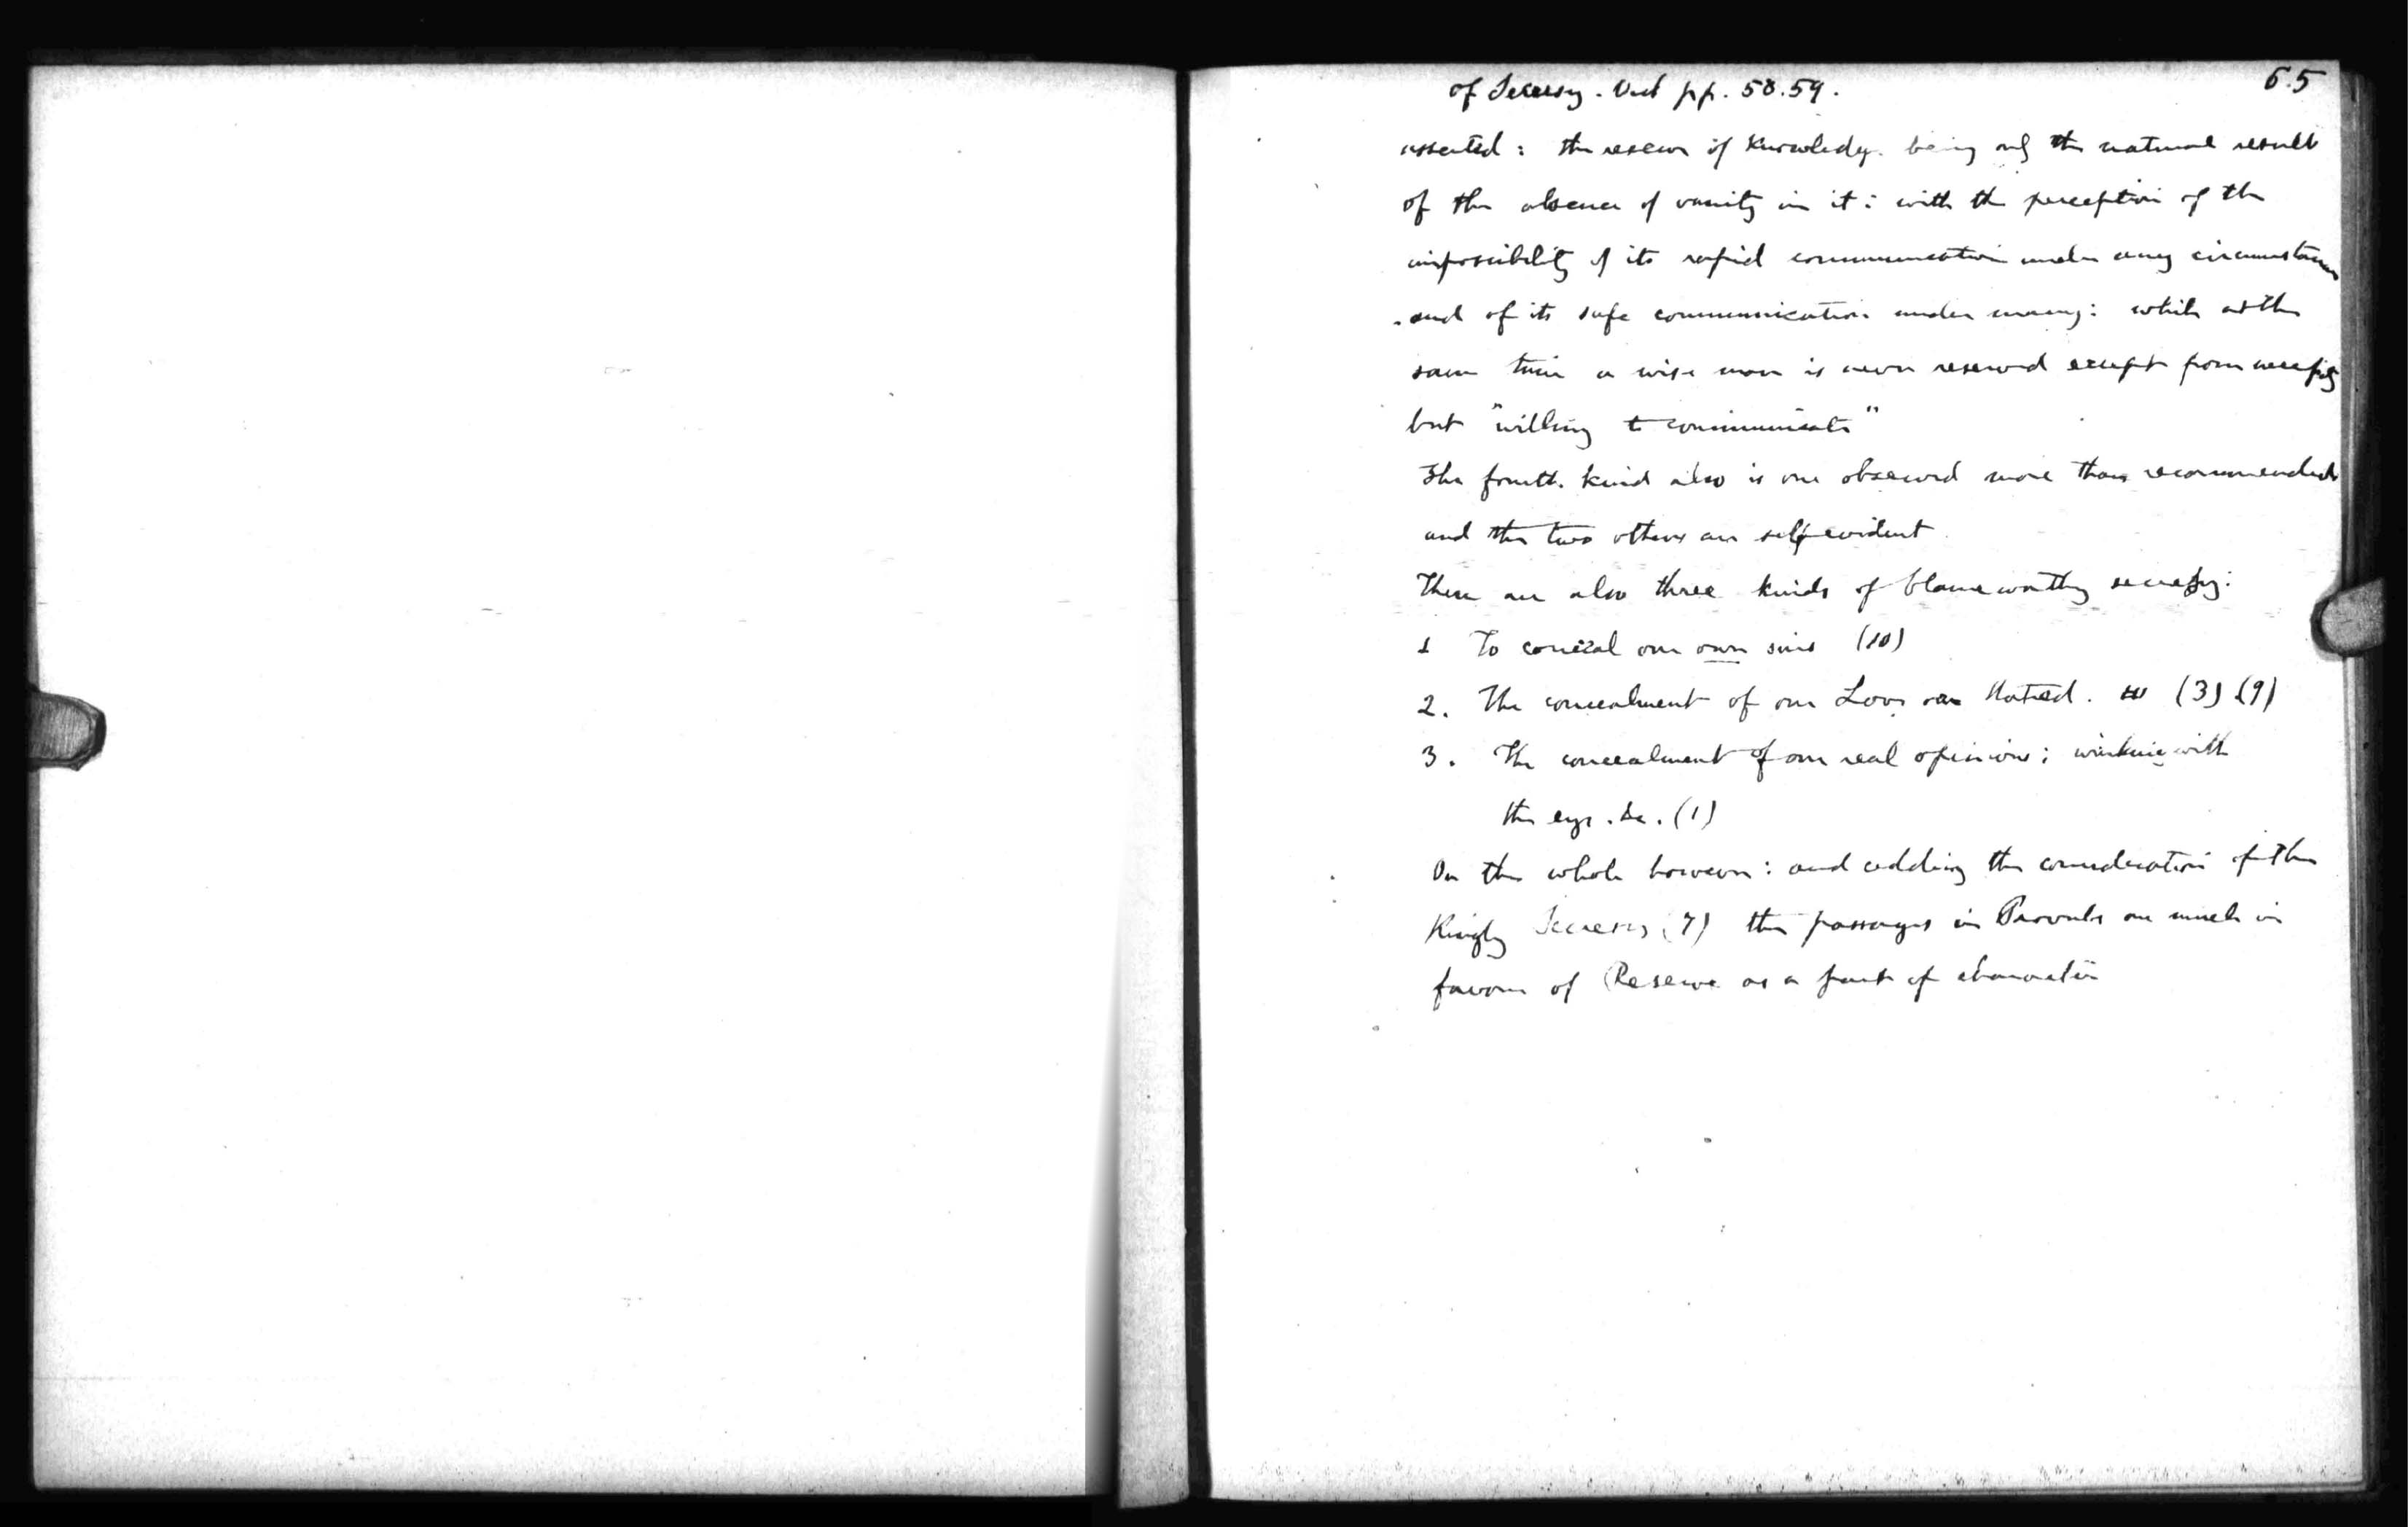 of Secresy. Vid pp. 58.59.
65
asserted: the reserve of knowledge being only the natural result
of the absence of vanity in it: with the perception of the
impossibility of its rapid communication under any circumstances
and of its safe communication under many: while at the
same time a wise man is never reserved except from necessity
but "willing to communicate"
The fourth kind also is one observed more than recommended
and the two others are self evident
There are also three kinds of blameworthy secresy:
1 To conceal our own sins (10)
2. The concealment of our Love or Hatred. (3) (9)
3. The concealment of our real opinions; winking with
the eye. &c. (1)
On the whole however: and adding the consideration of the
Kingly Secresy (7) the passages in Proverbs are much in
favour of Reserve as a part of character